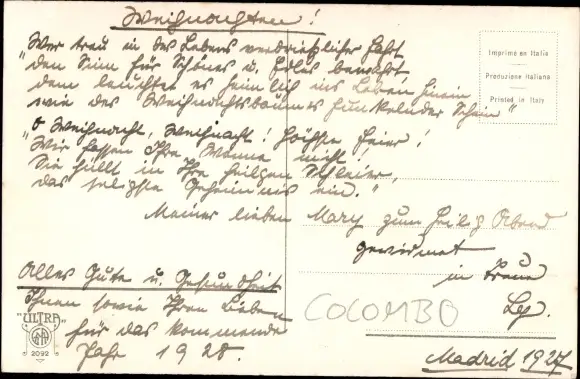 Weihnachten!
"Wer treu in des Lebens verdrießlicher Fahrt
den Sinn für Schönes u. Edles bewahrt,
dem leuchtet es heimlich ins Leben hinein
wie des Weihnachtsbaumes funkelnder Schein"
"O Weihnacht, Weihnacht! Höchste Feier!
Wir fassen Ihre Wonne nicht
Sie hüllt in Ihre heilgen Schleier,
das seligste Geheimnis ein."
Meiner lieben Mary zum heilig Abend
gewidmet
in Treue
Alles Gute u. Gesundheit
Ihnen sowie Ihren Lieben
für das kommende
Jahr 1928.
COLOMBO
Madrid 1927
Imprimé en Italie
Produzione Italiana
Printed in Italy
"ULTRA"
2092